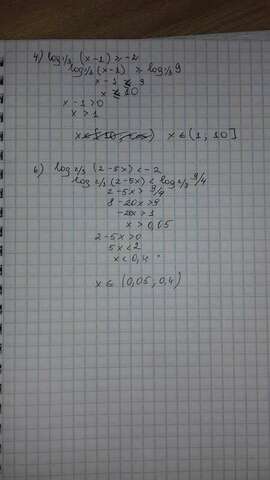 4) log₁/₃ (x-1) ≥ -2
log₁/₃ (x-1) ≥ log₁/₃ 9
x - 1 ≤ 9
x ≤ 10
x - 1 > 0
x > 1
x ∈ (1, 10]
6) log₂/₃ (2-5x) < -2
log₂/₃ (2-5x) < log₂/₃ 9/4
2-5x > 9/4
8-20x > 9
-20x > 1
x > 0,05
2-5x > 0
5x < 2
x < 0,4
x ∈ (0,05, 0,4)